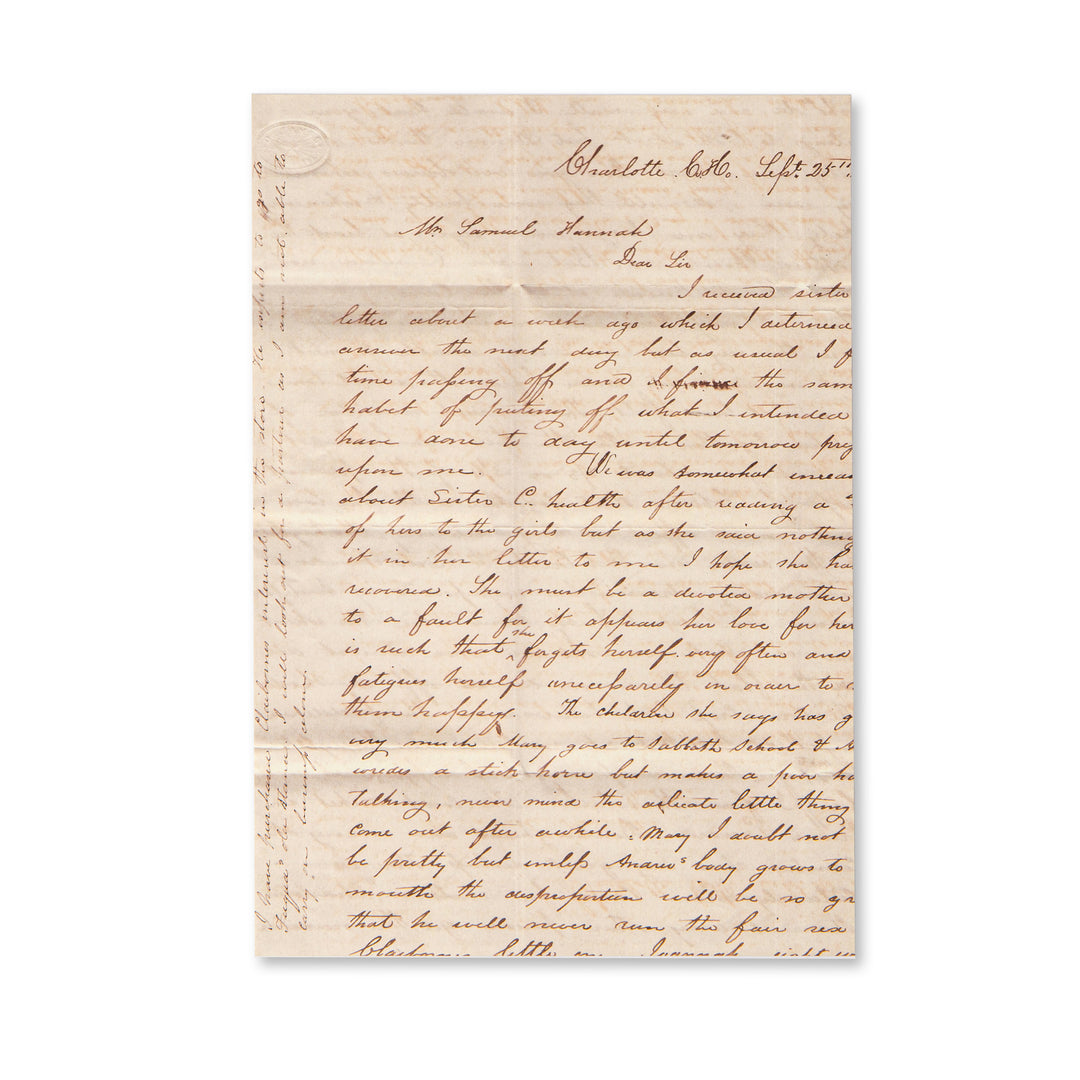 Charlotte C.Ho. Sept. 25th
Mr. Samuel Hannah
Dear Sir
I received sister
letter about a week ago which I determined
answer the next day but as usual I f
time passing off and the sam
habit of puting off what I intended
have done to day until tomorrow prey
upon me. We was somewhat uneas
about Sister C. health after reading a
of hers to the girls but as she said nothing
it in her letter to me I hope she ha
recovered. She must be a devoted mother
to a fault for it appears her love for her
is such that she forgets herself very often and
fatigues herself unecessarily in order to
them happy. The children she says has g
very much Mary goes to Sabbath School & A
a stick horse but makes a poor ha
Talking, never mind the delicate little thing
come out after awhile. Mary I doubt not
be pretty but unless Andrews body grows to
mouth the desproportion will be so gr
that he will never run the fair sex
Claibornes little one
I have purchased Claibornes interest in the store. He expects to go to
I will look out for a partner as I am not able to
carry on business alone.